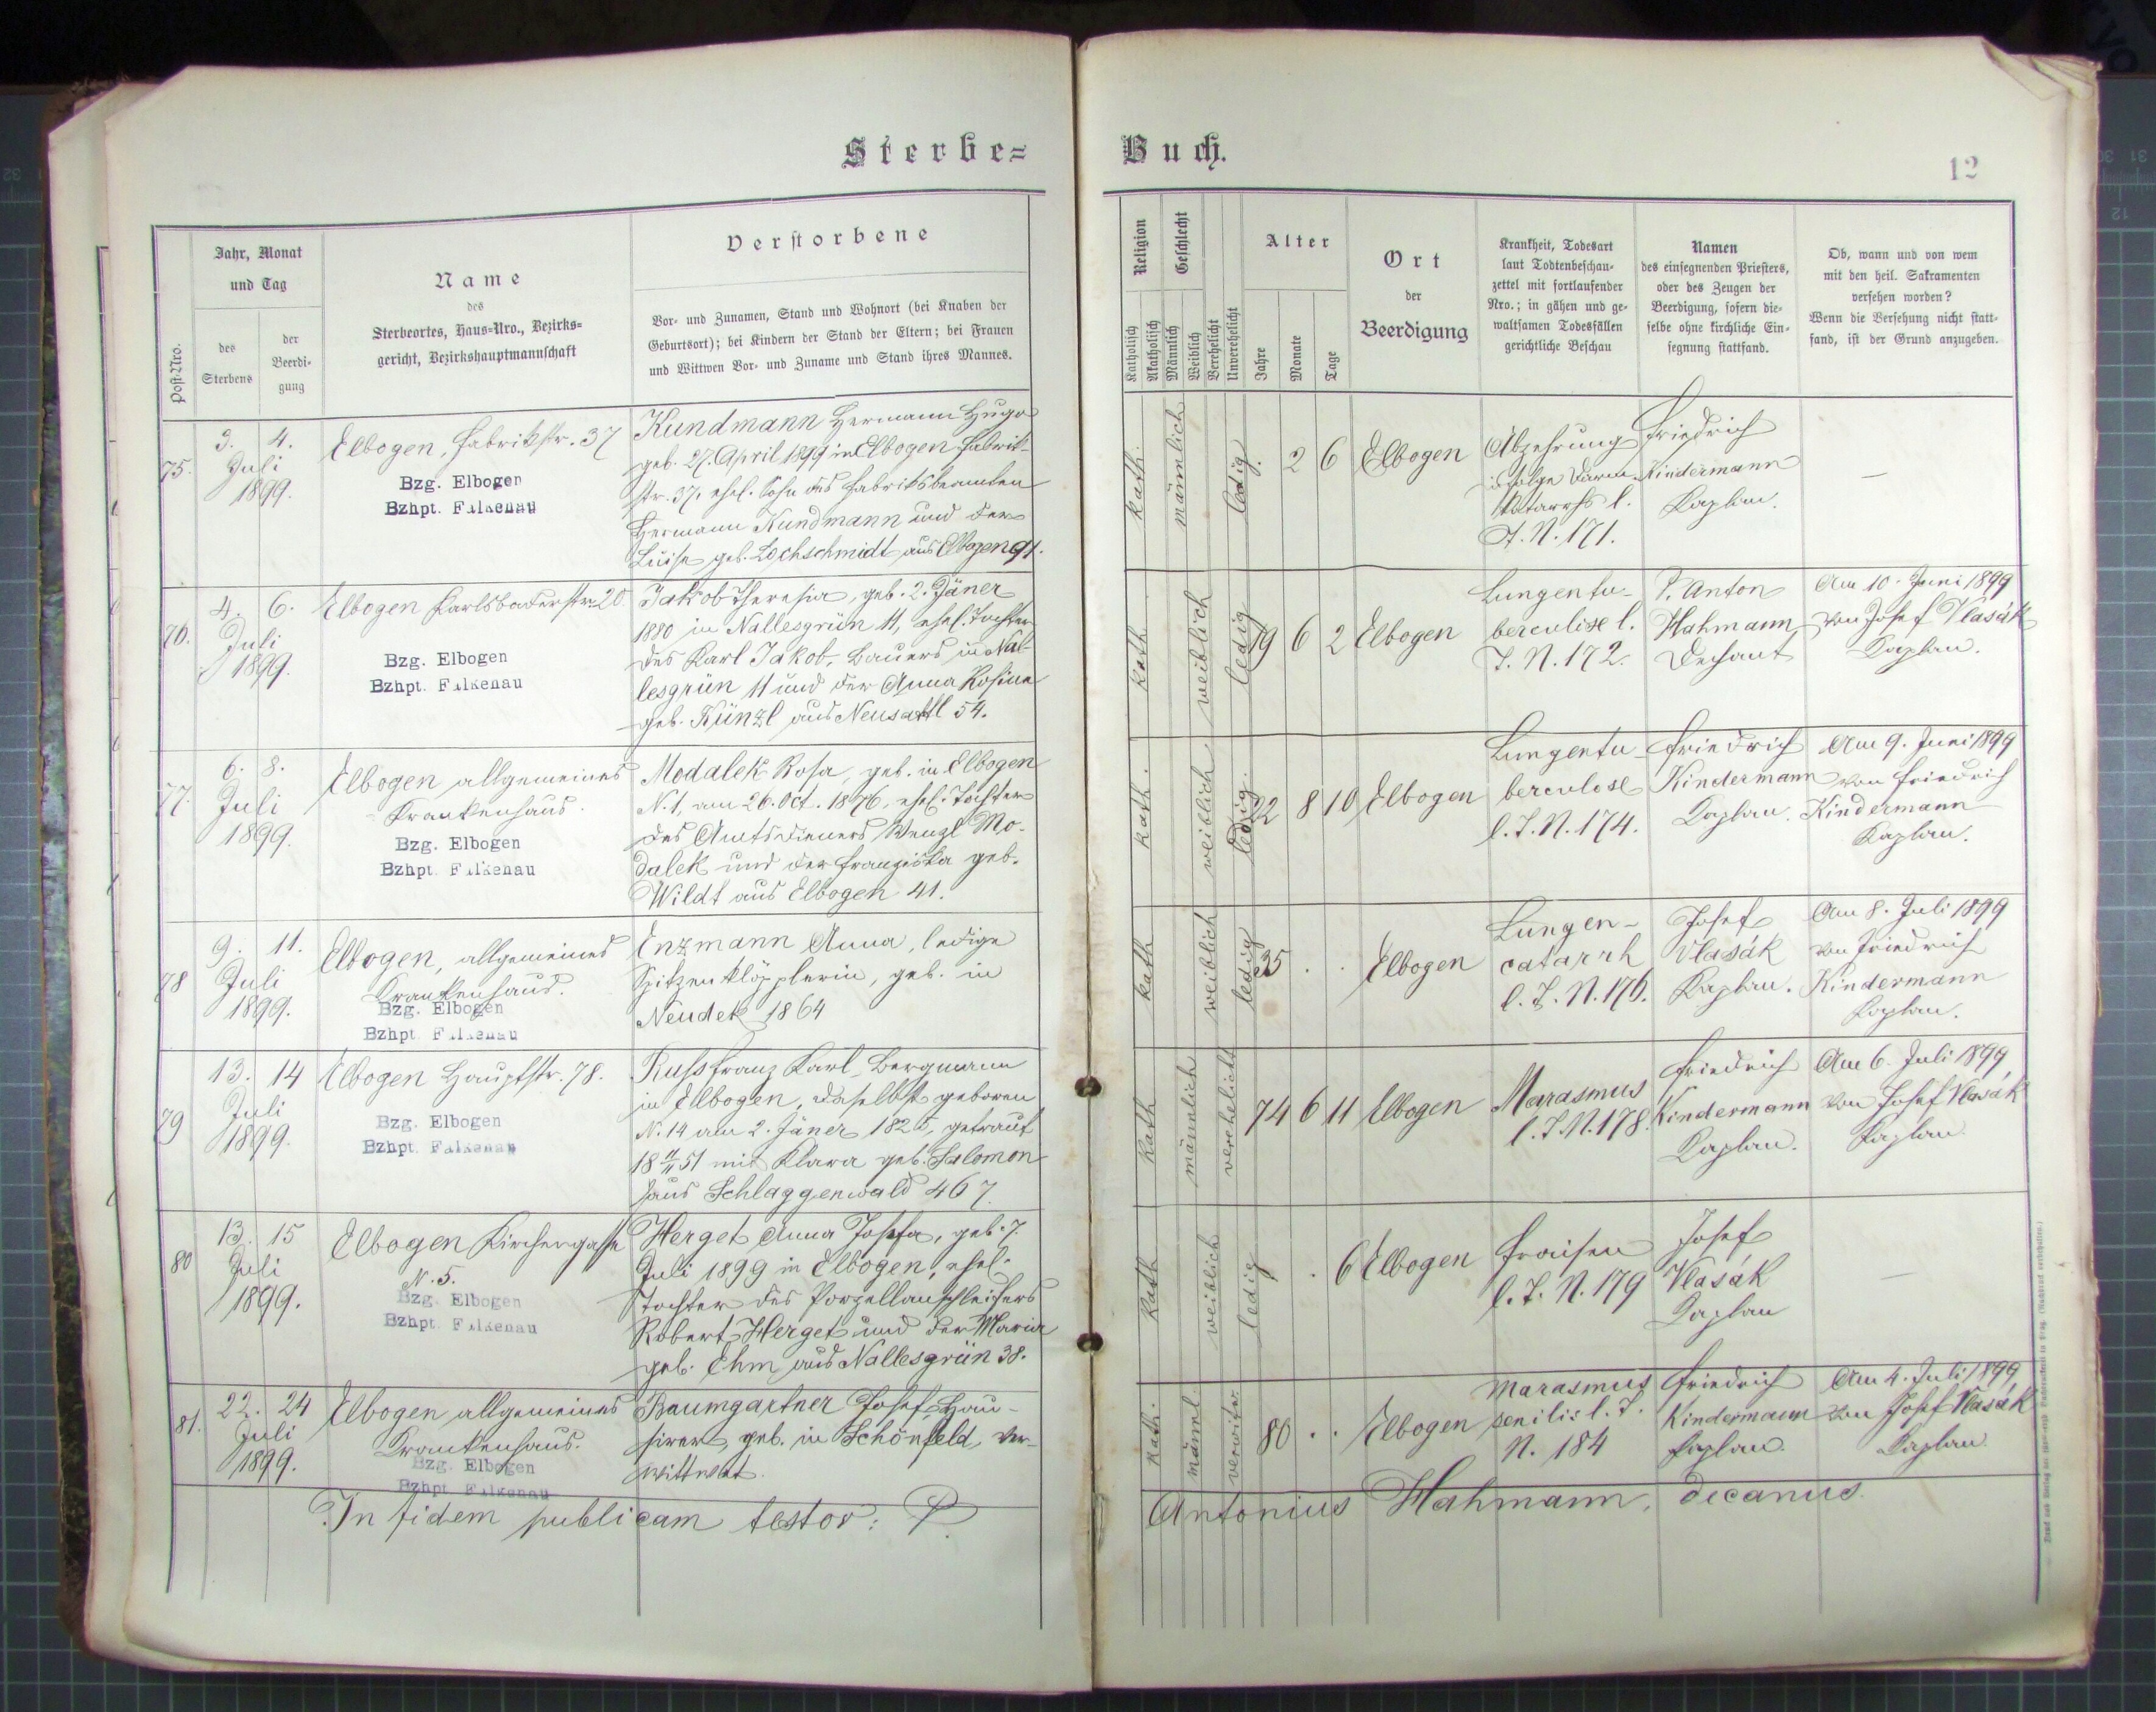 Sterbe=
Buch.
12
Post-Nro.
Jahr, Monat
und Tag
des
Sterbens
der
Beerdi-
gung
Name
des
Sterbeortes, Haus-Nro., Bezirks-
gericht, Bezirkshauptmannschaft
Verstorbene
Vor- und Zunamen, Stand und Wohnort (bei Knaben der
Geburtsort); bei Kindern der Stand der Eltern; bei Frauen
und Wittwen Vor- und Zuname und Stand ihres Mannes.
Religion
Katholisch
Akatholisch
Geschlecht
Männlich
Weiblich
Verehelicht
Unverehelicht
Alter
Jahre
Monate
Tage
Ort
der
Beerdigung
Krankheit, Todesart
laut Todtenbeschau-
zettel mit fortlaufender
Nro.; in gähen und ge-
waltsamen Todesfällen
gerichtliche Beschau
Namen
des einsegnenden Priesters,
oder des Zeugen der
Beerdigung, sofern die-
selbe ohne kirchliche Ein-
segnung stattfand.
Ob, wann und von wem
mit den heil. Sakramenten
versehen worden?
Wenn die Versehung nicht statt-
fand, ist der Grund anzugeben.
75.
3. 4.
Juli
1899.
Elbogen, Fabrikstr. 37
Bzg. Elbogen
Bzhpt. Falkenau
Kundmann Hermann Hugo
geb. 27. April 1899 in Elbogen Fabrik-
str. 37, ehel. Sohn des Fabriksbeamten
Hermann Kundmann und der
Luise geb. Lochschmidt aus Elbogen 91.
kath.
männlich
ledig
. 2 6
Elbogen
Abzehrung
infolge Darm-
katarrhs l.
T. N. 171.
Friedrich
Kindermann
Kaplan.
—
76.
4. 6.
Juli
1899.
Elbogen Karlsbaderstr. 20
Bzg. Elbogen
Bzhpt. Falkenau
Jakob Theresia, geb. 2. Jäner
1880 in Nallesgrün 11, ehel. Tochter
des Karl Jakob, Bauers in Nal-
lesgrün 11 und der Anna Rosina
geb. Künzl aus Neusattl 54.
kath.
weiblich
ledig
19 6 2
Elbogen
Lungentu-
berculise l.
T. N. 172.
P. Anton
Hahmann
Dechant
Am 10. Juni 1899
von Josef Vlasák
Kaplan.
77.
6. 8.
Juli
1899.
Elbogen allgemeines
Krankenhaus.
Bzg. Elbogen
Bzhpt. Falkenau
Modalek Rosa, geb. in Elbogen
N. 1, am 26. Oct. 1876, ehel. Tochter
des Amtsdieners Wenzl Mo-
dalek und der Franziska geb.
Wildt aus Elbogen 41.
kath.
weiblich
ledig.
22 8 10
Elbogen
Lungentu-
berculose
l. T. N. 174.
Friedrich
Kindermann
Kaplan.
Am 9. Juni 1899
von Friedrich
Kindermann
Kaplan.
78
9. 11.
Juli
1899.
Elbogen, allgemeines
Krankenhaus.
Bzg. Elbogen
Bzhpt. Falkenau
Enzmann Anna, ledige
Spitzenklöpplerin, geb. in
Neudek 1864
kath
weiblich
ledig
35 . .
Elbogen
Lungen-
catarrh
l. T. N. 176.
Josef
Vlasák
Kaplan.
Am 8. Juli 1899
von Friedrich
Kindermann
Kaplan.
79
13. 14
Juli
1899.
Elbogen Hauptstr. 78.
Bzg. Elbogen
Bzhpt. Falkenau
Russ Franz Karl, Bergmann
in Elbogen, daselbst geboren
N. 14 am 2. Jäner 1825, getraut
51 mit Klara geb. Salomon
aus Schlaggenwald 467.
kath
männlich
verehelicht
74 6 11
Elbogen
Marasmus
l. T. N. 178.
Friedrich
Kindermann
Kaplan.
Am 6. Juli 1899
von Josef Vlasák
Kaplan.
80
13. 15
Juli
1899.
Elbogen Kirchengasse
N. 5.
Bzg. Elbogen
Bzhpt. Falkenau
Herget Anna Josefa, geb. 7.
Juli 1899 in Elbogen, ehel.
Tochter des Porzellanschleifers
Robert Herget und der Maria
geb. Ehm aus Nallesgrün 38.
kath
weiblich
ledig
. 6
Elbogen
Fraisen
l. T. N. 179
Josef
Vlasák
Kaplan
—
81.
22. 24
Juli
1899.
Elbogen allgemeines
Krankenhaus.
Bzg. Elbogen
Bzhpt. Falkenau
Baumgartner Josef, Hau-
sirer, geb. in Schönfeld, ver-
wittwet.
kath.
männl.
verwitw.
80 . .
Elbogen
Marasmus
senilis l. T.
N. 184
Friedrich
Kindermann
Kaplan.
Am 4. Juli 1899
von Josef Vlasák
Kaplan.
In fidem publicam testor: P.
Antonius Hahmann, decanus.